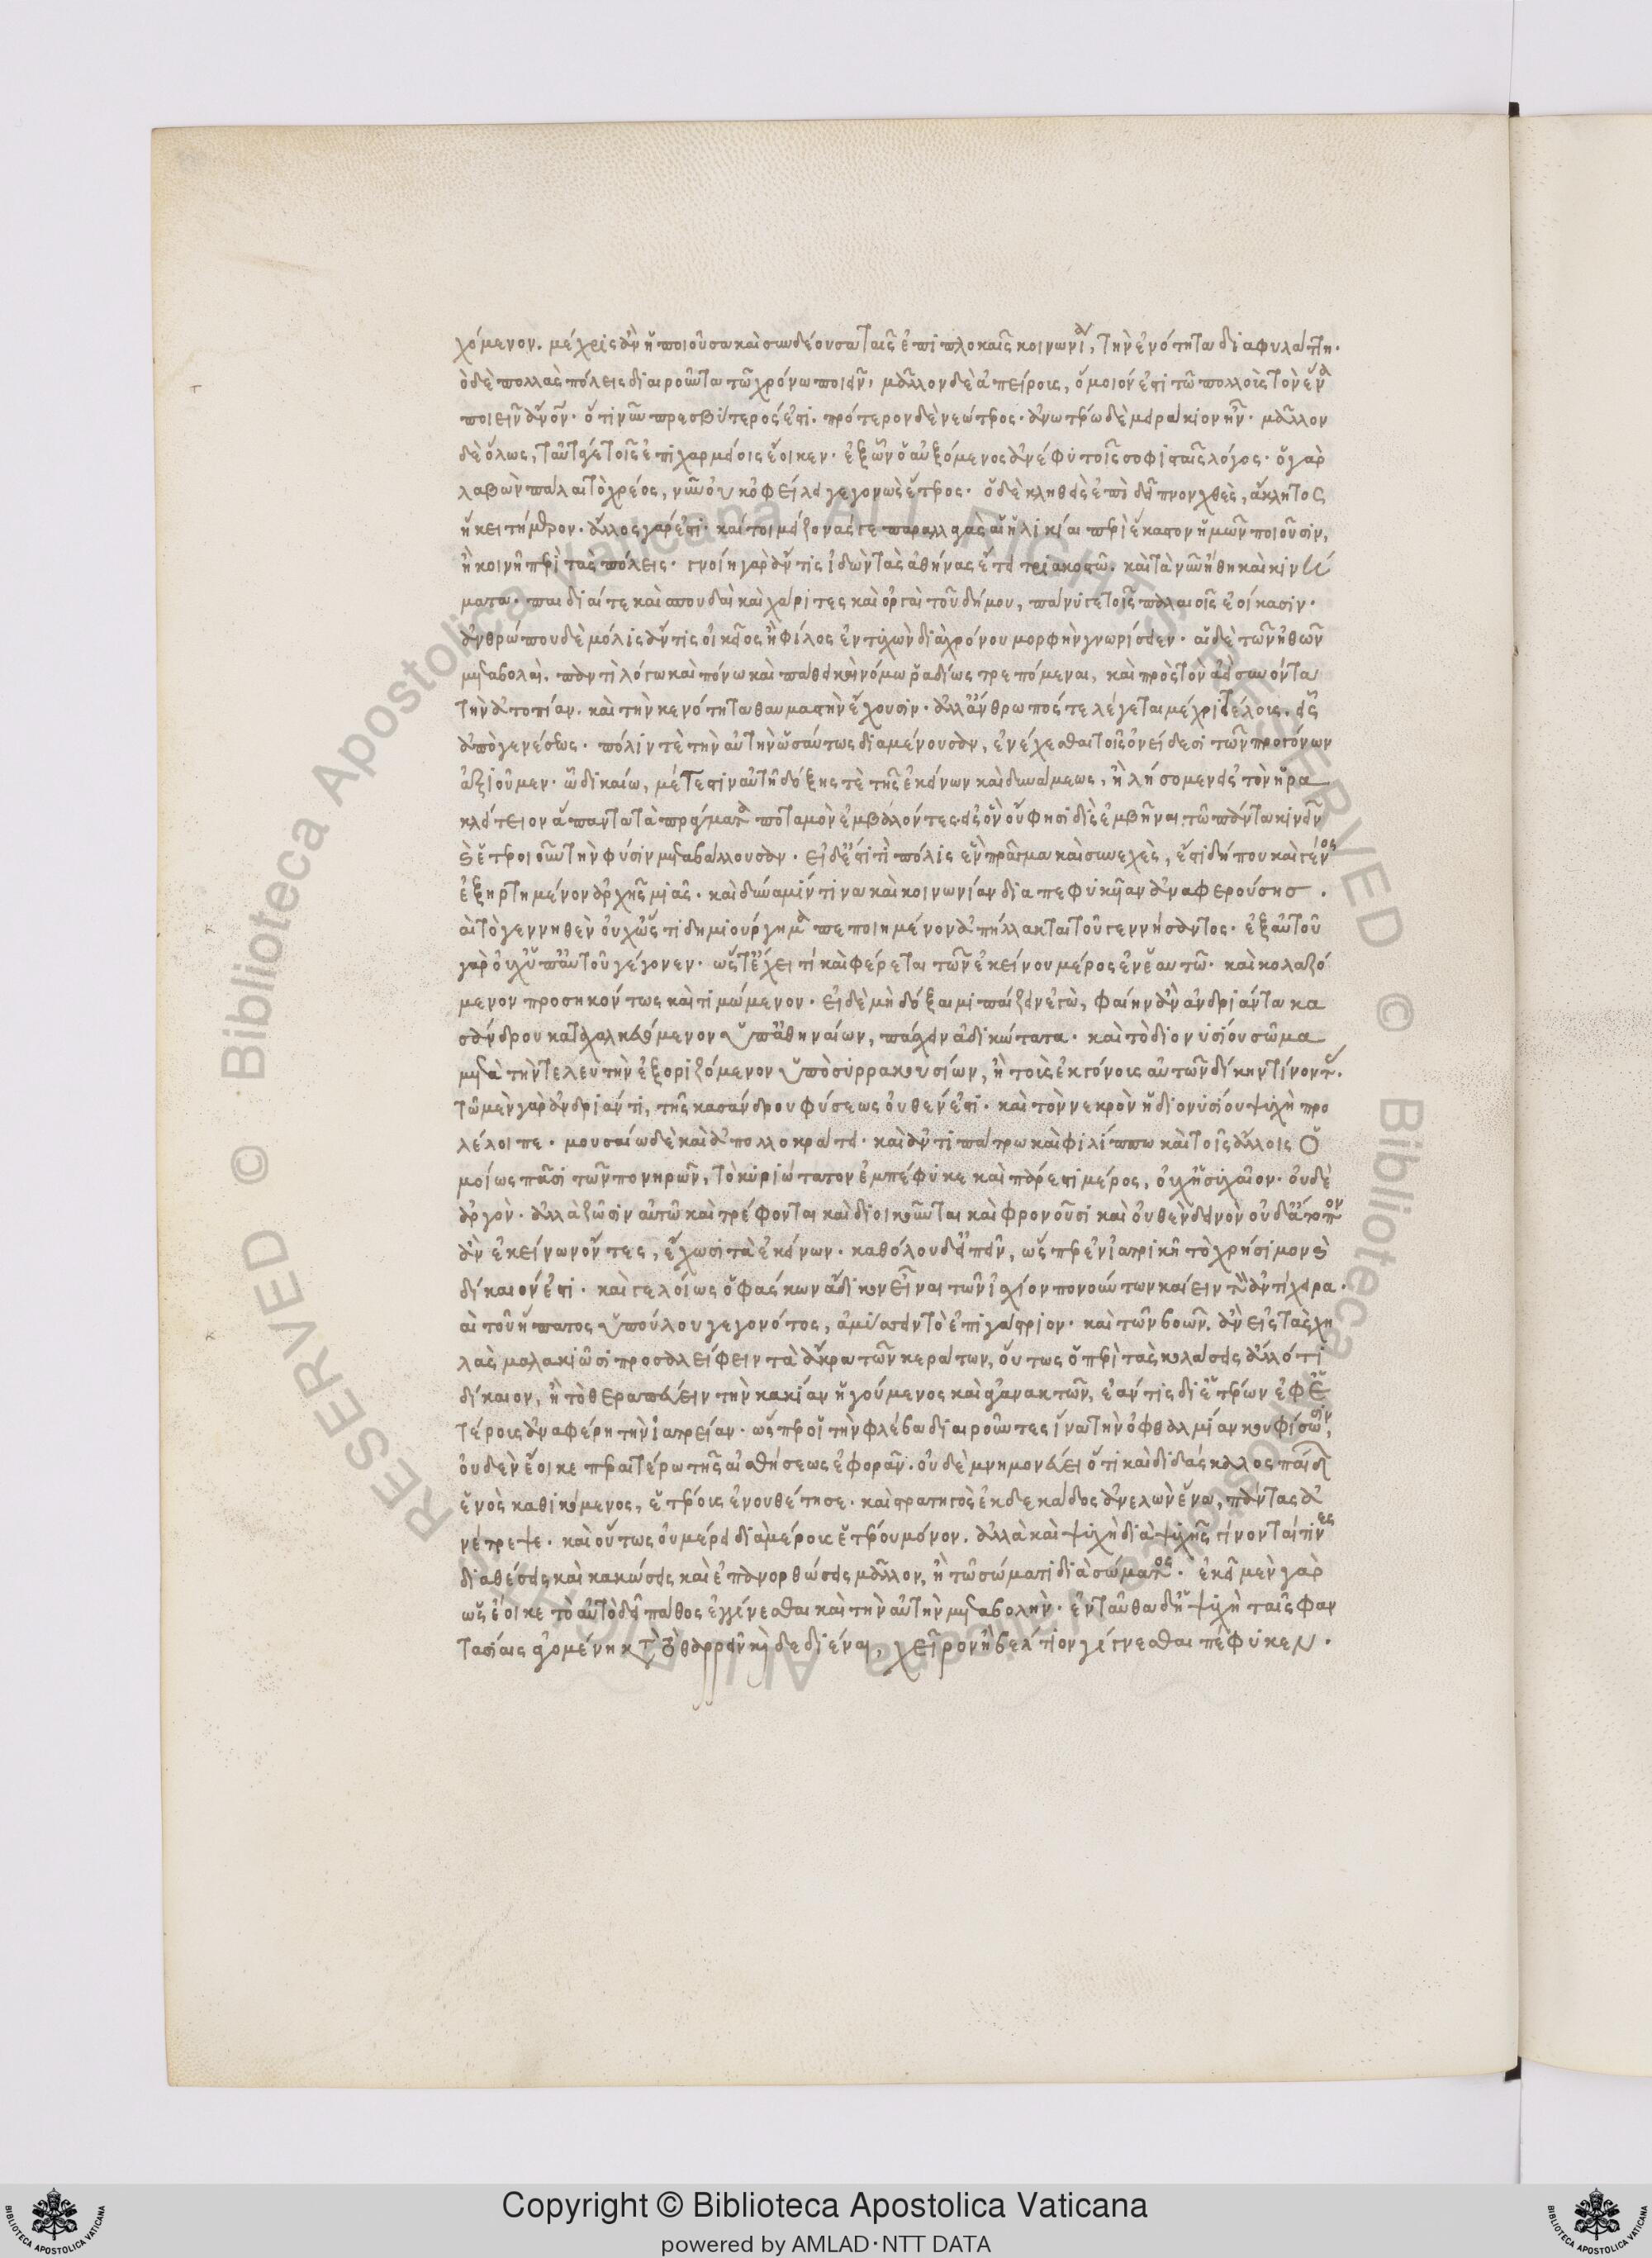 χόμενον. μέχρις ἂν ἡ ποιοῦσα καὶ συνδέουσα ταῖς ἐπιπλοκαῖς κοινωνία, τὴν ἑνότητα διαφυλάττη.
ὁ δὲ πολλὰς πόλεις διαιροῦντα τῶ χρόνω ποιεῖν, μᾶλλον δὲ ἀπείρους, ὅμοιόν ἐστι τῶ πολλοὺς τὸν ἕνα
ποιεῖν ἄνθρωπον. ὅτι νῦν πρεσβύτερός ἐστι. πρότερον δὲ νεώτερος. ἀνωτέρω δὲ μειράκιον ἦν. μᾶλλον
δὲ ὅλως, ταῦτά γε τοῖς ἐπιχαρμείοις ἔοικεν. ἐξ ὧν ὁ αὐξόμενος ἀνέφυ τοῖς σοφισταῖς λόγος. ὁ γὰρ
λαβὼν πάλαι τὸ χρέος, νῦν οὐκ ὀφείλει γεγονὼς ἕτερος. ὁ δὲ κληθεὶς ἐπὶ δεῖπνον χθὲς, ἄκλητος
ἥκει τήμερον. ἄλλος γάρ ἐστι. καίτοι μείζονάς γε παραλλαγὰς αἱ ἡλικίαι περὶ ἕκαστον ἡμῶν ποιοῦσιν,
ἢ κοινῆ περὶ τὰς πόλεις. γνοίη γὰρ ἄν τις ἰδὼν τὰς ἀθήνας ἔτει τριακοστῶ. καὶ τὰ νῦν ἤθη καὶ κινή
ματα. παιδιαί τε καὶ σπουδαὶ καὶ χάριτες καὶ ὀργαὶ τοῦ δήμου, πάνυ γε τοῖς παλαιοῖς ἐοίκασιν.
ἀνθρώπου δὲ μόλις ἄν τις οἰκεῖος ἢ φίλος ἐντυχὼν διὰ χρόνου μορφὴν γνωρίσειεν. αἱ δὲ τῶν ἠθῶν
μεταβολαὶ. παντὶ λόγω καὶ πόνω καὶ πάθει καὶ νόμω ῥαδίως τρεπόμεναι, καὶ πρὸς τὸν ἀεὶ συνόντα
τὴν ἀτοπίαν. καὶ τὴν κενότητα θαυμαστὴν ἔχουσιν. ἀλλ' ἄνθρωπός τε λέγεται μέχρι τέλους. εἷς
ἀπὸ γενέσεως. πόλιν τὲ τὴν αὐτὴν ὡσαύτως διαμένουσαν, ἐνέχεσθαι τοῖς ὀνείδεσι τῶν προγόνων
ἀξιοῦμεν. ὧ δικαίω, μέτεστιν αὐτῆ δόξης τὲ τῆς ἐκείνων καὶ δυνάμεως, ἢ λήσομεν εἰς τὸν ἡρα
κλείτειον ἅπαντα τὰ πράγματα ποταμὸν ἐμβαλόντες. εἰς ὃν οὔ φησι δὶς ἐμβῆναι. τῶ πάντα κινεῖν
καὶ ἑτεροιοῦν τὴν φύσιν μεταβάλλουσαν. εἰ δέ ἐστί τι πόλις ἓν πρᾶγμα καὶ συνεχὲς, ἔστι δήπου καὶ γένος
ἐξηρτημένον ἀρχῆς μιᾶς. καὶ δύναμίν τινα καὶ κοινωνίαν διαπεφυκυῖαν ἀναφερούσης.
καὶ τὸ γεννηθὲν οὐχ ὥς τι δημιούργημα πεποιημένον ἀπήλλακται τοῦ γεννήσαντος. ἐξ αὐτοῦ
γὰρ οὐχ ὑπ' αὐτοῦ γέγονεν. ὥστ' ἔχει τί καὶ φέρεται τῶν ἐκείνου μέρος ἐν ἑαυτῶ. καὶ κολαζό
μενον προσηκόντως καὶ τιμώμενον. εἰ δὲ μὴ δόξαιμι παίζειν ἐγὼ, φαίην ἂν ἀνδριάντα κα
σάνδρου καταχαλκευόμενον ὑπ' ἀθηναίων, πάσχειν ἀδικώτατα. καὶ τὸ διονυσίου σῶμα
μετὰ τὴν τελευτὴν ἐξοριζόμενον ὑπὸ συρρακουσίων, ἢ τοὺς ἐκγόνους αὐτῶν δίκην τίνοντας.
τῶ μὲν γὰρ ἀνδριάντι, τῆς κασάνδρου φύσεως οὐθὲν ἔστι. καὶ τὸν νεκρὸν ἡ διονυσίου ψυχὴ προ
λέλοιπε. νυσαίω δὲ καὶ ἀπολλοκράτει. καὶ ἀντιπάτρω καὶ φιλίππω καὶ τοῖς ἄλλοις ὁ
μοίως παισὶ τῶν πονηρῶν, τὸ κυριώτατον ἐμπέφυκε καὶ πάρεστι μέρος, οὐχ ἡσυχαῖον. οὐδὲ
ἀργὸν. ἀλλὰ ζῶσιν αὐτῶ καὶ τρέφονται καὶ διοικοῦνται καὶ φρονοῦσι καὶ οὐθὲν δεινὸν οὐδ' ἄτοπον
ἂν ἐκείνων ὄντες, ἔχωσι τὰ ἐκείνων. καθόλου δ' εἰπεῖν, ὥσπερ ἐν ἰατρικῆ τὸ χρήσιμον καὶ
δίκαιόν ἐστι. καὶ γελοίως ὁ φάσκων ἄδικον εἶναι τῶν ἰσχίον πονούντων καίειν τὸν ἀντίχειρα.
καὶ τοῦ ἥπατος ὑπούλου γεγονότος, ἀμύσσειν τὸ ἐπιγάστριον. καὶ τῶν βοῶν. ἂν εἰς τὰς χη
λὰς μαλακιῶσι προσαλείφειν τὰ ἄκρα τῶν κεράτων, οὕτως ὁ περὶ τὰς κολάσεις ἄλλό τι
δίκαιον, ἢ τὸ θεραπεύειν τὴν κακίαν ἡγούμενος καὶ ἀγανακτῶν, ἐάν τις δι' ἑτέρων ἐφ' ἑ
τέρους ἀναφέρη τὴν ἰατρείαν. ὥσπερ οἱ τὴν φλέβα διαιροῦντες ἵνα τὴν ὀφθαλμίαν κουφίσωσιν,
οὐδὲν ἔοικε περαιτέρω τῆς αἰσθήσεως ἐφορᾶν. οὐδὲ μνημονεύει ὅτι καὶ διδάσκαλος παίδων
ἑνὸς καθικόμενος, ἑτέρους ἐνουθέτησε. καὶ στρατηγὸς ἐκ δεκάδος ἀνελὼν ἕνα, πάντας ἀ
νέτρεψε. καὶ οὕτως οὐ μέρει διὰ μέρους ἑτέρου μόνον. ἀλλὰ καὶ ψυχὴ διὰ ψυχῆς γίνονταί τινες
διαθέσεις καὶ κακώσεις καὶ ἐπανορθώσεις μᾶλλον, ἢ τῶ σώματι διὰ σώματος. ἐκεῖ μὲν γὰρ
ὡς ἔοικε τὸ αὐτὸ δεῖ πάθος ἐγγίνεσθαι καὶ τὴν αὐτὴν μεταβολὴν. ἐνταῦθα δ' ἡ ψυχὴ ταῖς φαν
τασίαις ἀγομένη κατὰ τὸ θαρρεῖν καὶ δεδιέναι, χεῖρον ἢ βέλτιον γίγνεσθαι πέφυκεν.
Copyright © Biblioteca Apostolica Vaticana
powered by AMLAD·NTT DATA